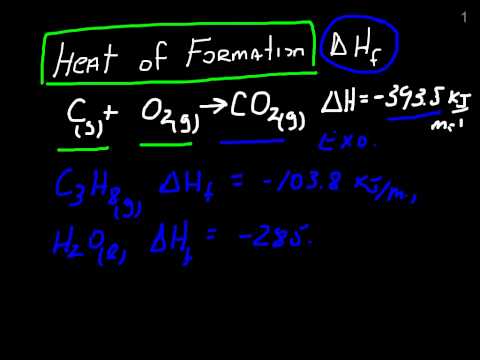 1
Heat of Formation ΔHf
C(s) + O2(g) → CO2(g) ΔH = -393.5 KJ/mol
Exo.
C3H8(g) ΔHf = -103.8 KJ/m
H2O(l) ΔHf = -285.